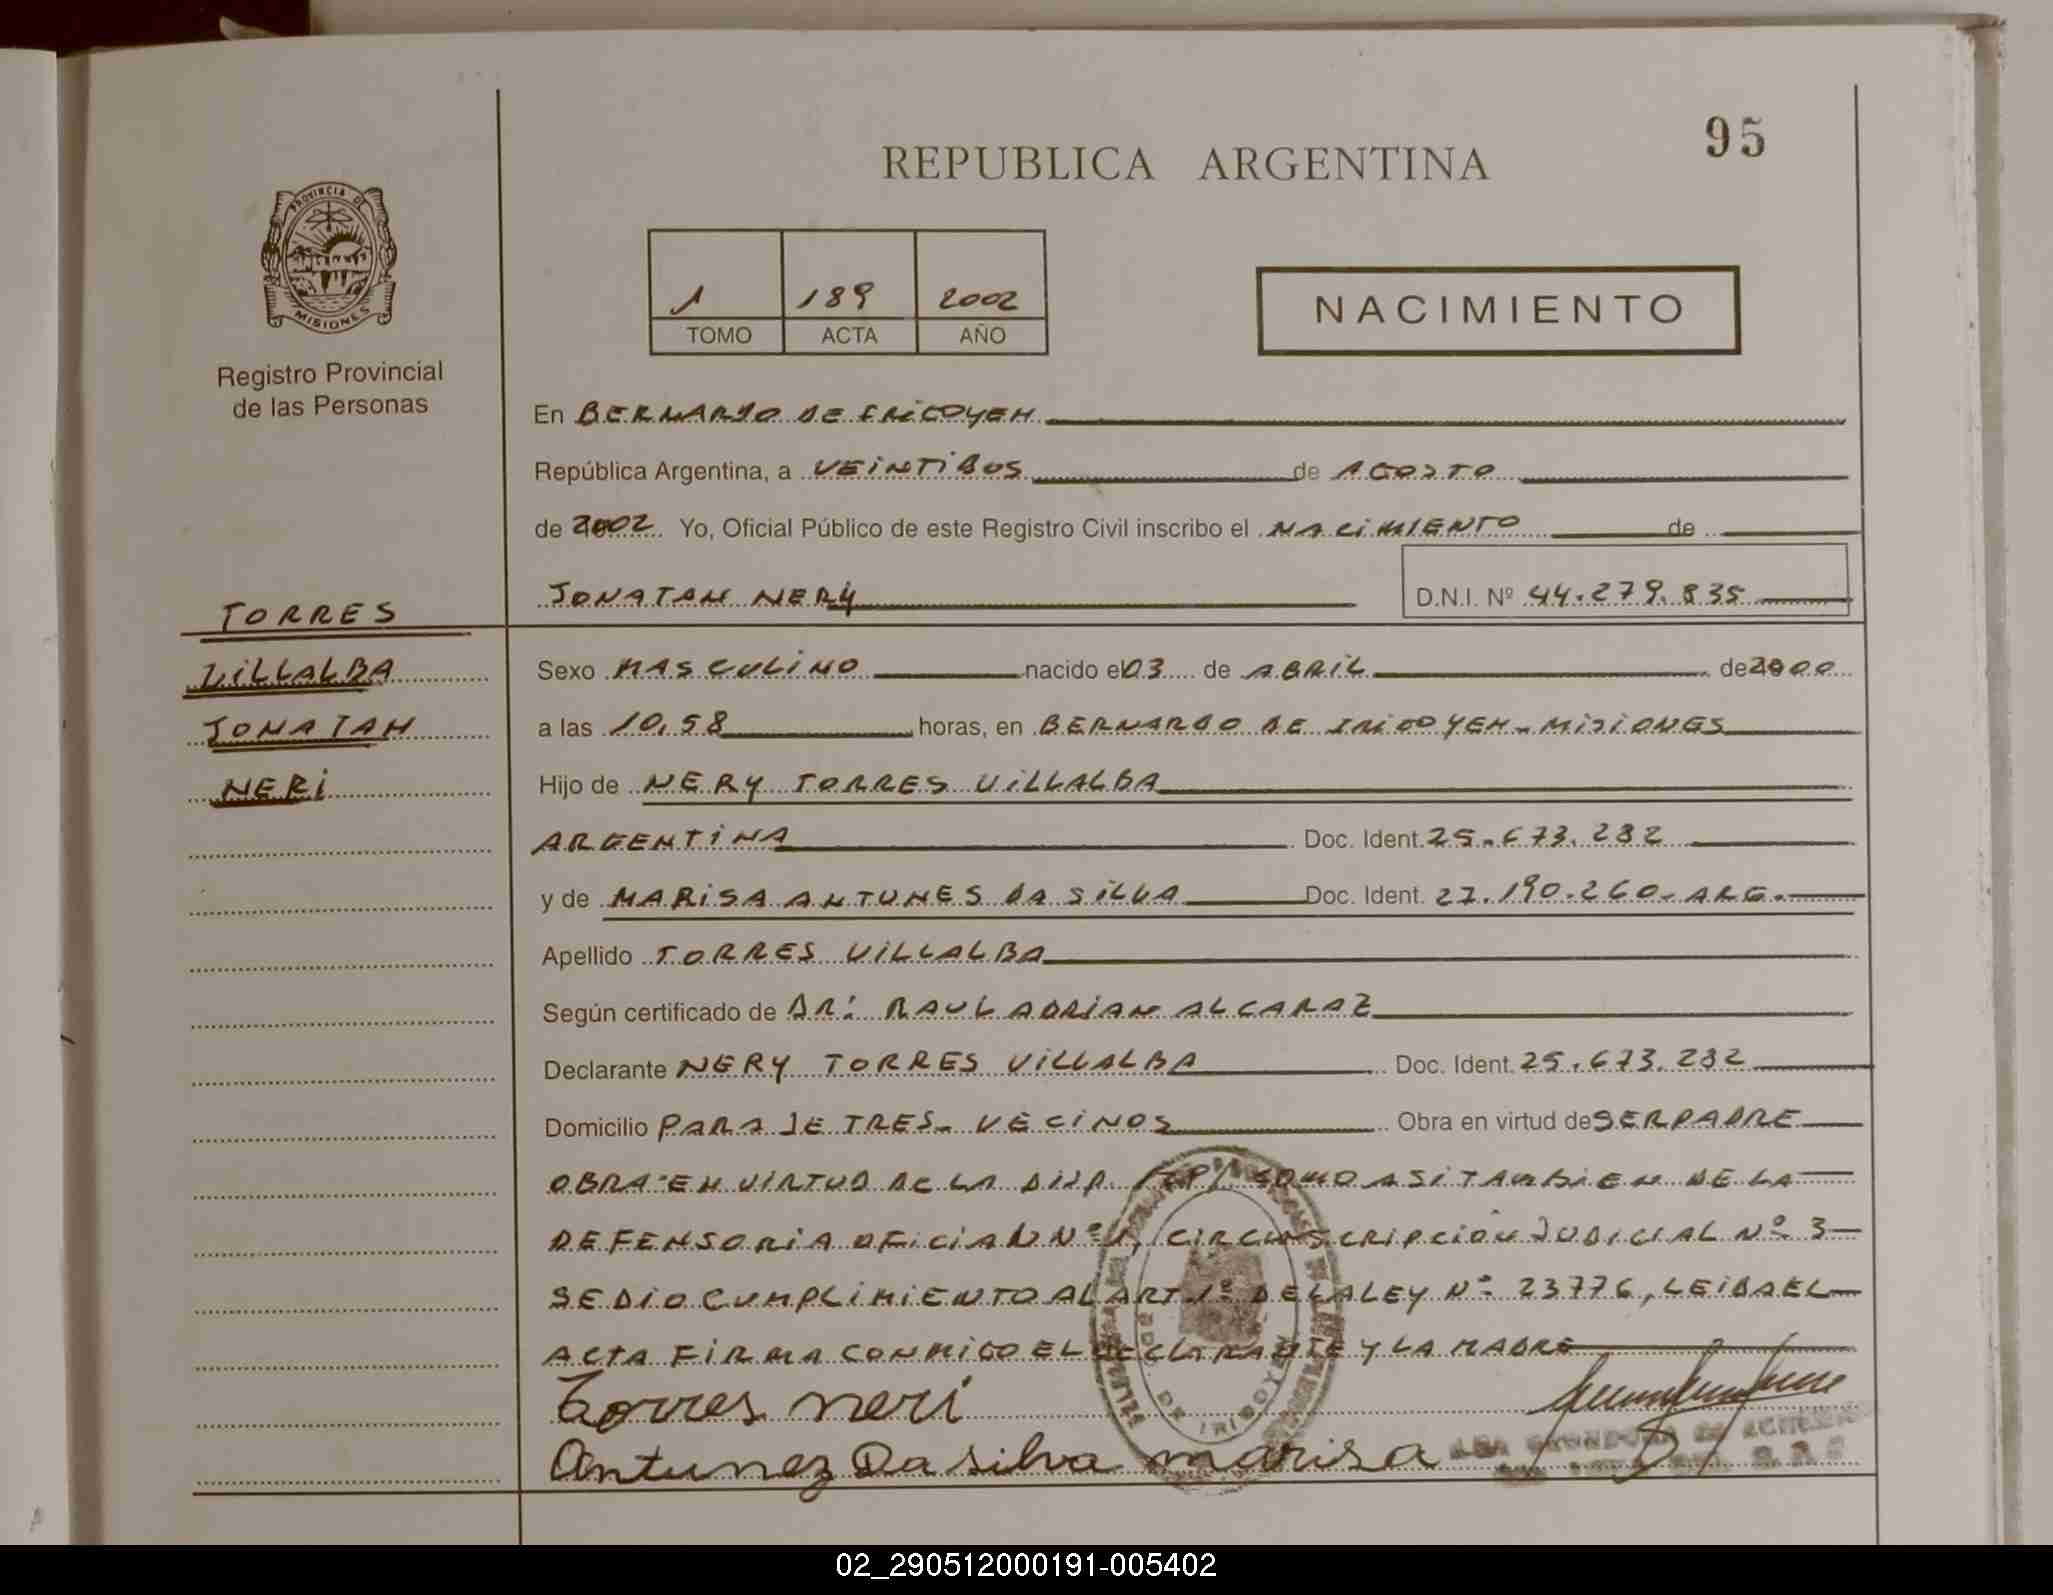 95
REPUBLICA ARGENTINA
PROVINCIA DE
MISIONES
Registro Provincial
de las Personas
1 189 2002
TOMO ACTA AÑO
NACIMIENTO
En BERNARDO DE IRIGOYEN
República Argentina, a VEINTIDOS de AGOSTO
de 2002. Yo, Oficial Público de este Registro Civil inscribo el NACIMIENTO de
JONATAN NERY D.N.I. Nº 44.279.835
TORRES
VILLALBA
JONATAN
NERI
Sexo MASCULINO nacido el 03 de ABRIL de 2000
a las 10,58 horas, en BERNARDO DE IRIGOYEN - MISIONES
Hijo de NERY TORRES VILLALBA
ARGENTINA Doc. Ident. 25.673.282
y de MARISA ANTUNES DA SILVA Doc. Ident. 27.190.260- ARG.
Apellido TORRES VILLALBA
Según certificado de DR: RAUL ADRIAN ALCARAZ
Declarante NERY TORRES VILLALBA Doc. Ident. 25.673.282
Domicilio PARAJE TRES- VECINOS Obra en virtud de SER PADRE
OBRA EN VIRTUD DE LA DISP. COMO ASI TAMBIEN DE LA
DEFENSORIA OFICIAL Nº 1, CIRCUNSCRIPCION JUDICIAL Nº 3
SE DIO CUMPLIMIENTO AL ART 1º DE LA LEY Nº 23776, LEIDA EL
ACTA FIRMA CONMIGO EL DECLARANTE Y LA MADRE
Torres neri
Antunez Da silva marisa
DE IRIGOYEN
02_290512000191-005402